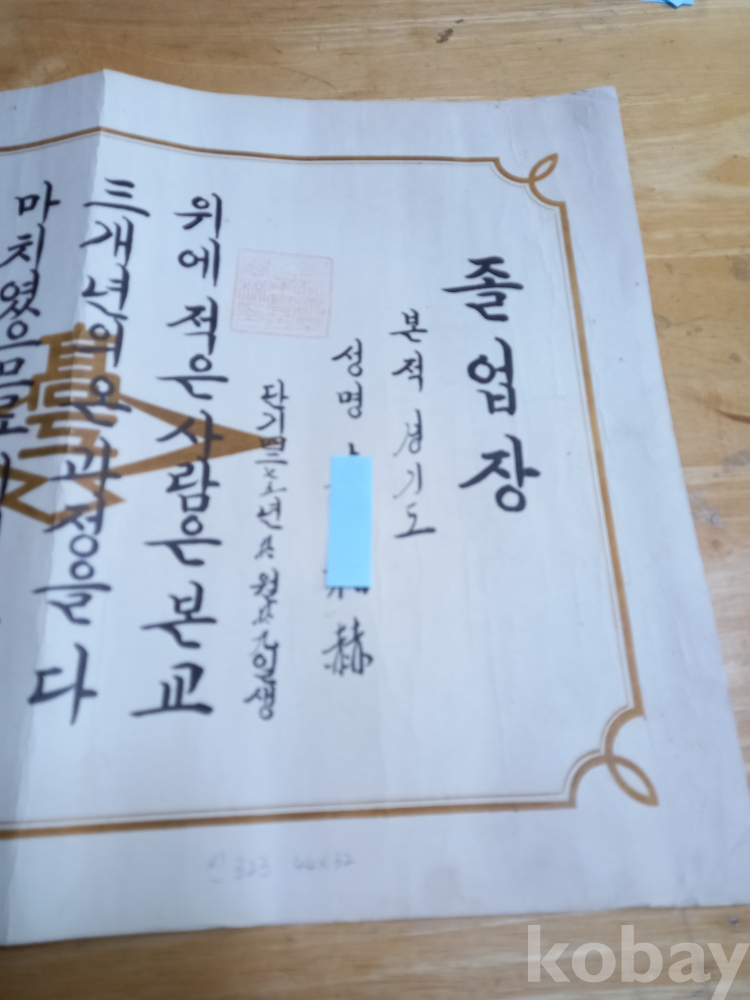 졸업장
본적 경기도
성명 赫
단기四二 년 월 일생
위에 적은 사람은 본교
三개년의 온 과정을 다
마치였으므로
신323 44x32
kobay